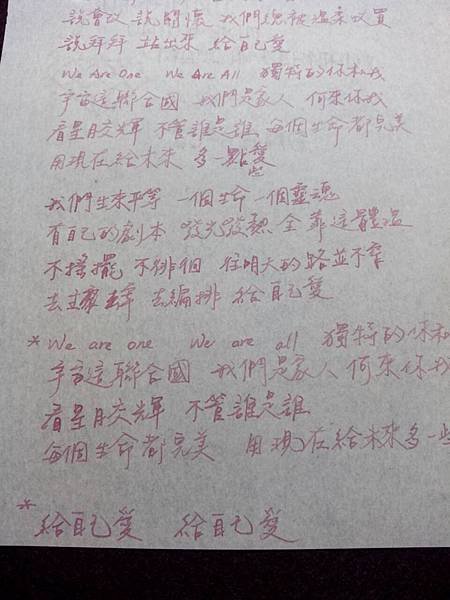 說會改 說關懷 我們總被溫柔放置
說拜拜 站出來 給自己愛
We Are One We Are All 獨特的你和我
宇宙這聯合國 我們是家人 何來你我
看星月交輝 不管誰是誰 每個生命都完美
用現在給未來 多一點愛
些
我們生來平等 一個生命 一個靈魂
有自己的劇本 發光發熱全靠這體溫
不搖擺 不徘徊 往明天的路並不窄
去主宰 去編排 給自己愛
* We are one We are all 獨特的你和
宇宙這聯合國 我們是家人 何來你我
看星月交輝 不管誰是誰
每個生命都完美 用現在給未來多一些
*
給自己愛 給自己愛